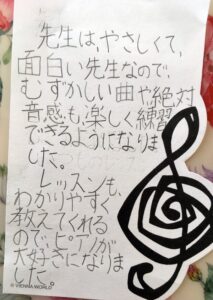 先生は、やさしくて、
面白い先生なので、
むずかしい曲や絶対
音感も、楽しく練習
できるようになりま
した。
レッスンも、
わかりやすく
教えてくれる
ので、ピアノが
大好きになりま
した。
© VIENNA WORLD